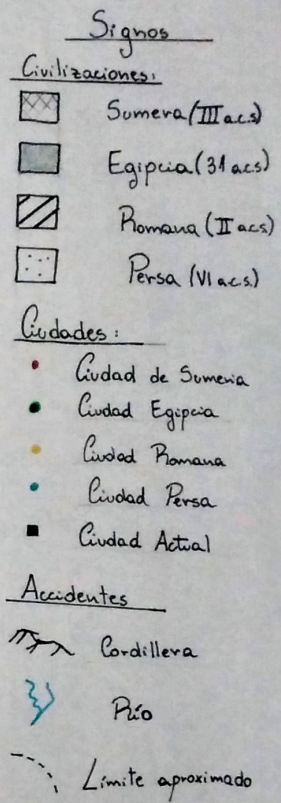 Signos
Civilizaciones:
Sumera (III a.c.s)
Egipcia (31 a.c.s)
Romana (II a.c.s)
Persa (VI a.c.s.)
Ciudades:
Ciudad de Sumeria
Ciudad Egipcia
Ciudad Romana
Ciudad Persa
Ciudad Actual
Accidentes
Cordillera
Río
Límite aproximado